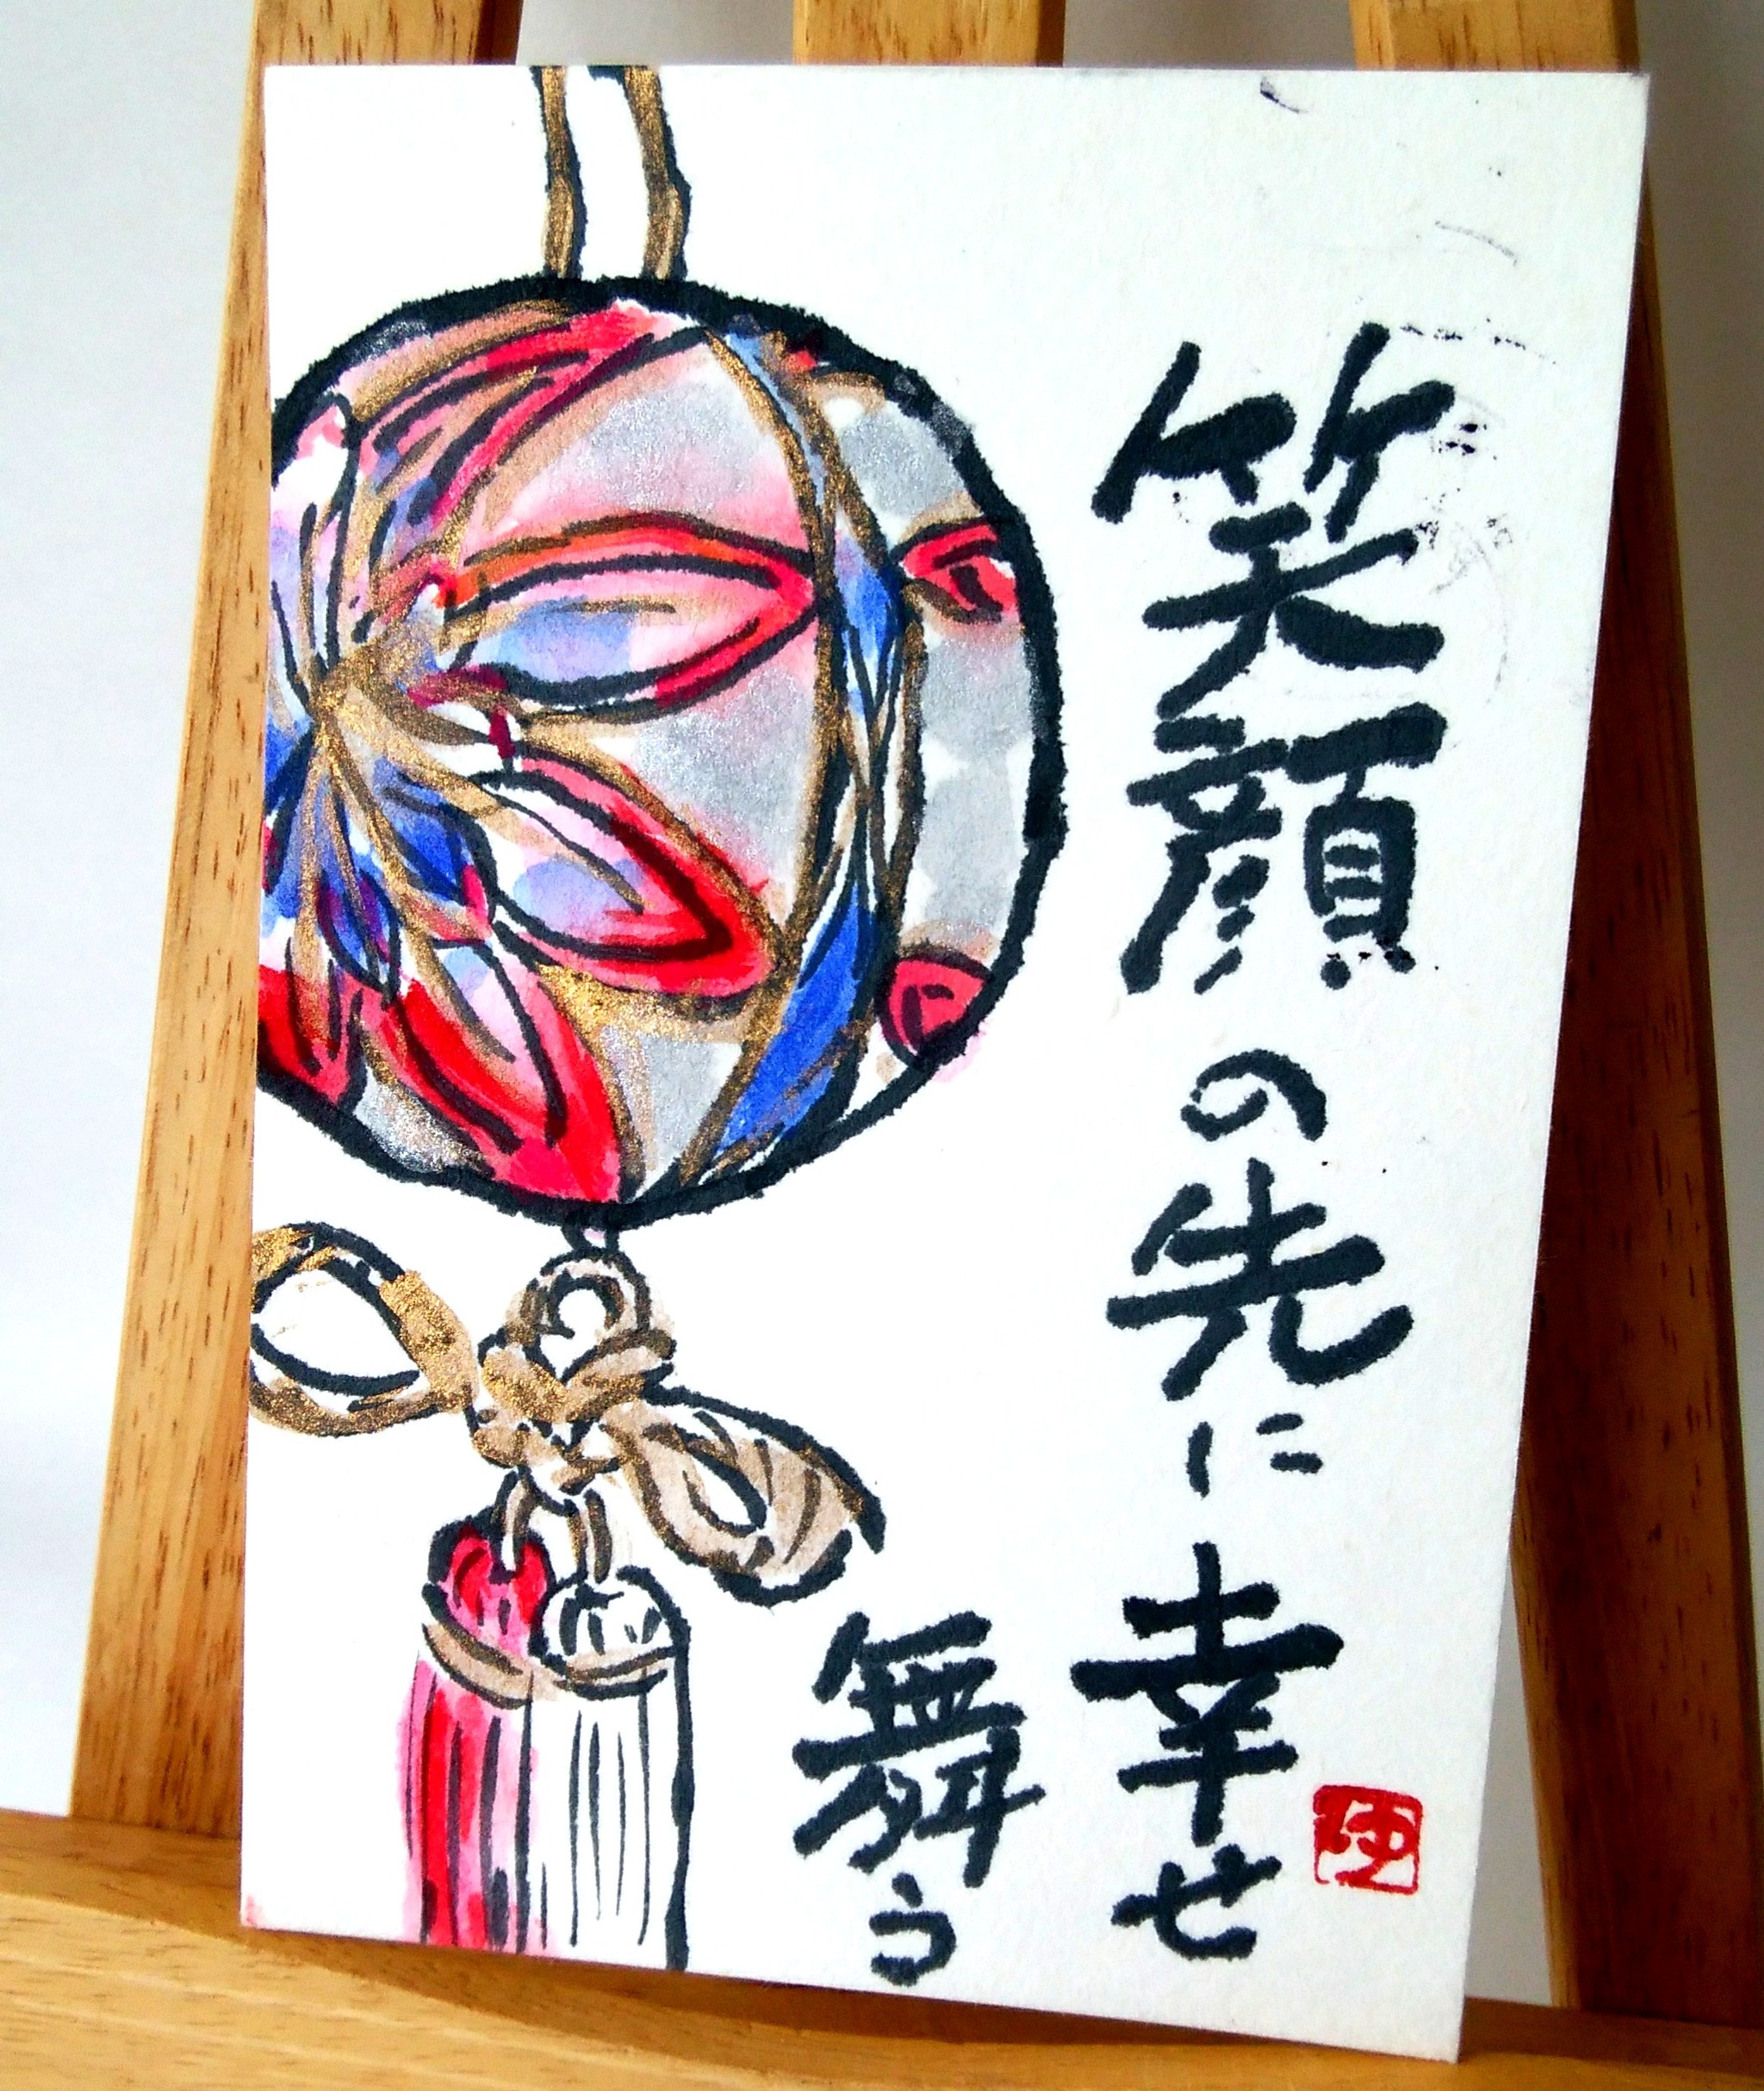 笑顔の先に幸せ
舞う